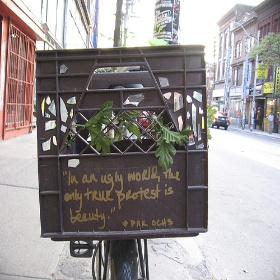 "In an ugly world, the
only true protest is
beauty."
* PHIL OCHS